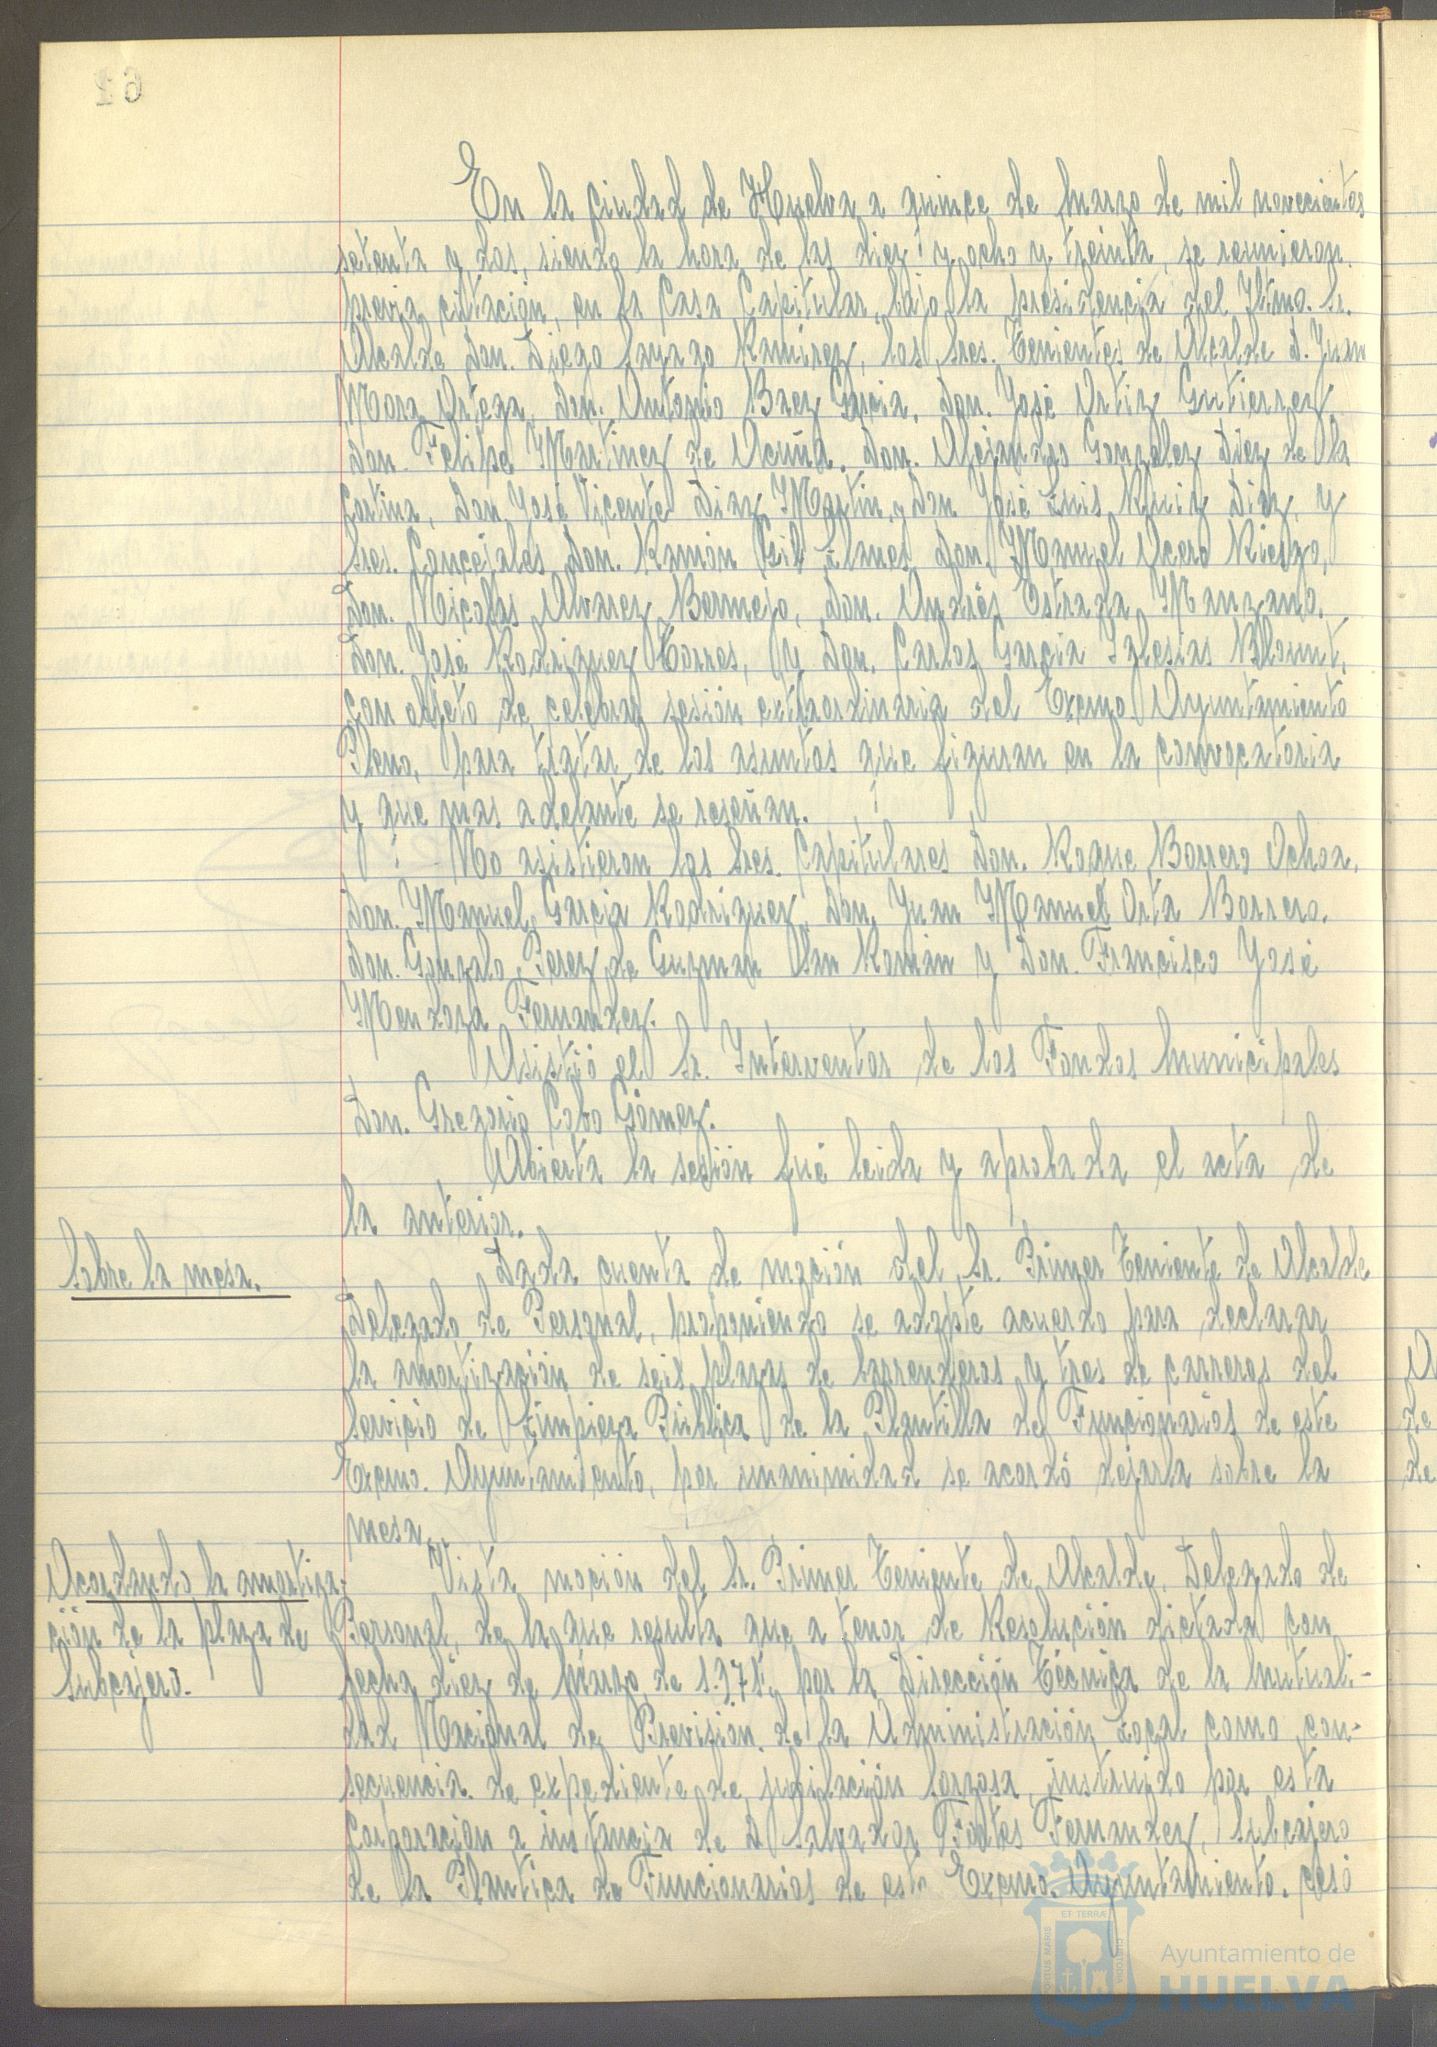 En la Ciudad de Huelva a quince de Marzo de mil novecientos
setenta y dos, siendo la hora de las diez y ocho y treinta, se reunieron
previa citación, en la Casa Capitular, bajo la presidencia del Iltmo. Sr.
Alcalde Don. Diego Sayago Ramirez, los Sres. Tenientes de Alcalde D. Juan
Mora Ortega, Don. Antonio Baez Garcia, Don. José Ortiz Gutierrez
Don. Felipe Martinez de Acuña, Don. Alejandro Gonzalez Diez de la
Cortina, Don José Vicente Diaz Martin, y Don José Luis Ruiz Diaz, y
Sres. Concejales Don. Ramón Gil Llanes, Don. Manuel Acero Riesgo,
Don. Nicolas Alvarez Bermejo, Don. Andrés Estrada Manzano,
Don. José Rodriguez Torres, y Don. Carlos Garcia Iglesias Blount,
con objeto de celebrar sesión extraordinaria del Excmo Ayuntamiento
Pleno, para tratar de los asuntos que figuran en la convocatoria
y que mas adelante se reseñan.
No asistieron los Sres. Capitulares Don. Roque Borrero Ochoa,
Don. Manuel Garcia Rodriguez, Don. Juan Manuel Orta Borrero,
Don. Gonzalo Perez de Guzman San Román y Don. Francisco José
Mendoza Fernandez.
Asistió el Sr. Interventor de los Fondos Municipales
Don. Gregorio Cobo Gómez.
Abierta la sesión fué leida y aprobada el acta de
la anterior.
Sobre la mesa.
Dada cuenta de moción del Sr. Primer Teniente de Alcalde
Delegado de Personal, proponiendo se adopte acuerdo para declarar
la amortización de seis plazas de barrenderos y tres de carreros del
Servicio de Limpieza Pública de la Plantilla de Funcionarios de este
Excmo. Ayuntamiento, por unanimidad se acordó dejarla sobre la
mesa.
Acordando la amortiza-
ción de la plaza de
Subcajero.
Vista moción del Sr. Primer Teniente de Alcalde, Delegado de
Personal, de la que resulta que a tenor de Resolución dictada con
fecha diez de Marzo de por la Dirección Técnica de la Mutuali-
dad Nacional de Previsión de la Administración Local como con-
secuencia de expediente de jubilación forzosa, instruido por esta
Corporación a instancia de D Salvador Fernandez, Subcajero
de la Plantilla de Funcionarios de este Excmo. Ayuntamiento, cesó
Ayuntamiento de
HUELVA